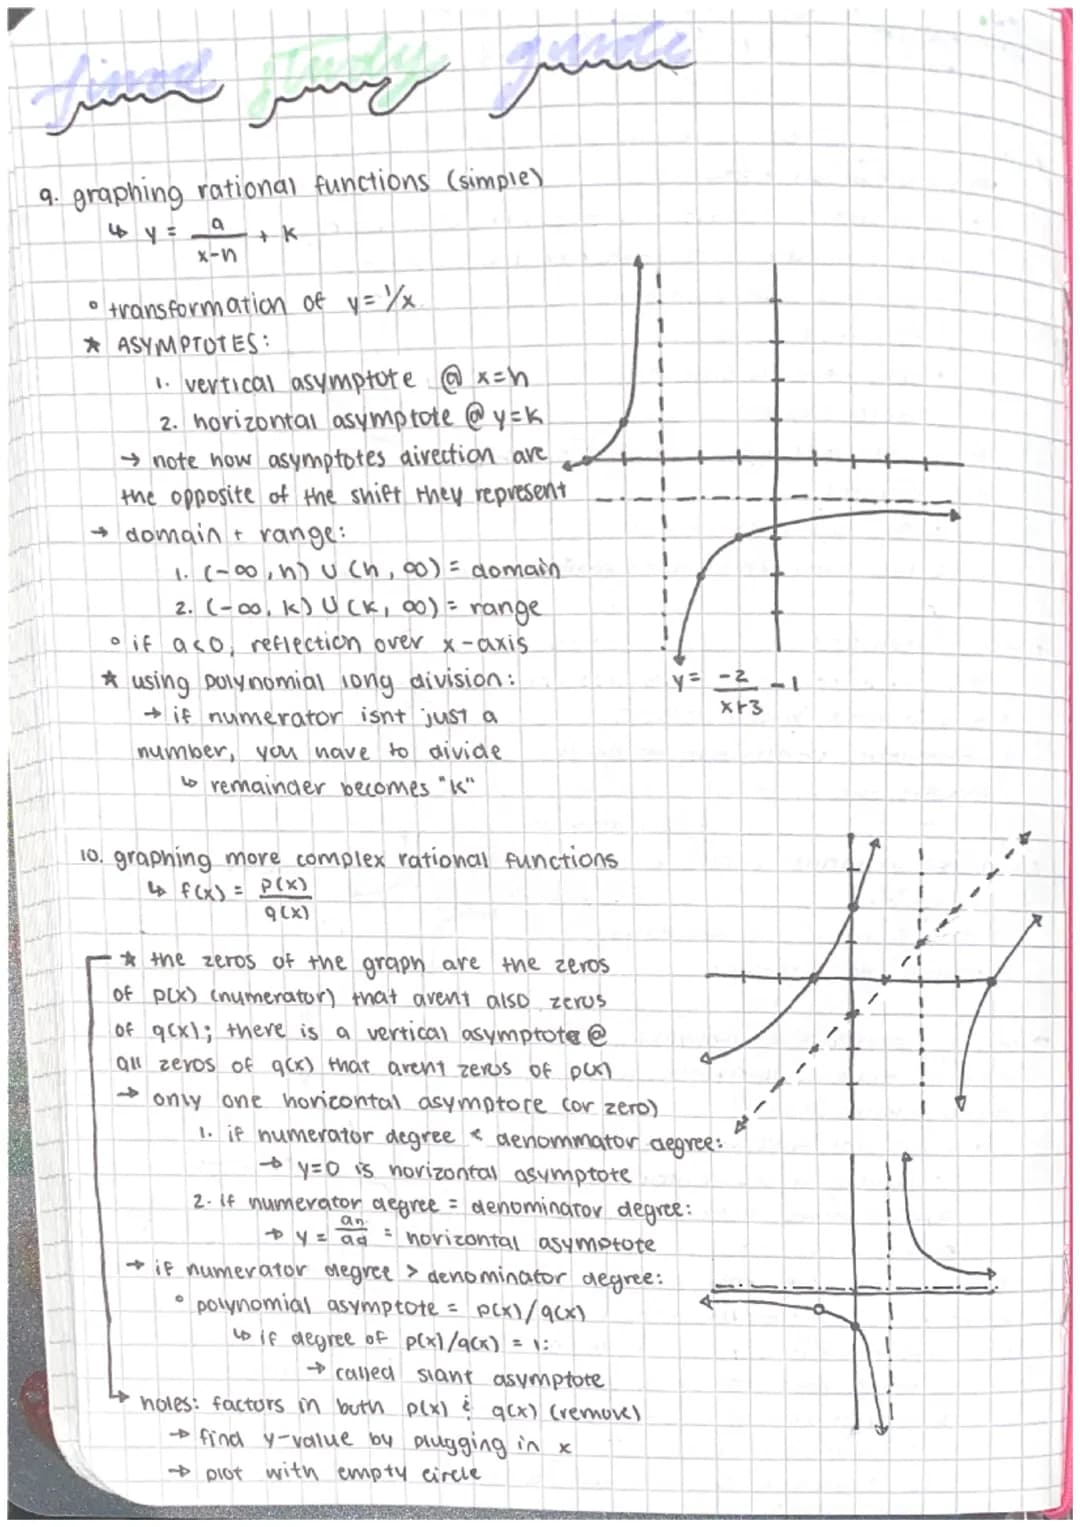 final study guide
9. graphing rational functions (simple)
↳ y = a/x-h + k
° transformation of y = 1/x
* ASYMPTOTES:
1. vertical asymptote @ x=h
2. horizontal asymptote @ y=k
→ note how asymptotes direction are
the opposite of the shift they represent
→ domain + range:
1. (-∞, h) U (h, ∞) = domain
2. (-∞, k) U (k, ∞) = range
° if a<0, reflection over x-axis
* using polynomial long division:
→ if numerator isnt just a
number, you have to divide
↳ remainder becomes "k"
y = -2/x+3 - 1
10. graphing more complex rational functions
↳ f(x) = p(x)/q(x)
* the zeros of the graph are the zeros
of p(x) (numerator) that arent also zeros
of q(x); there is a vertical asymptote @
all zeros of q(x) that arent zeros of p(x)
→ only one horizontal asymptote (or zero)
1. if numerator degree < denominator degree:
→ y=0 is horizontal asymptote
2. if numerator degree = denominator degree:
→ y = an/aq = horizontal asymptote
→ if numerator degree > denominator degree:
° polynomial asymptote = p(x)/q(x)
↳ if degree of p(x)/q(x) = 1:
→ called slant asymptote
→ holes: factors in both p(x) & q(x) (remove)
→ find y-value by plugging in x
→ plot with empty circle